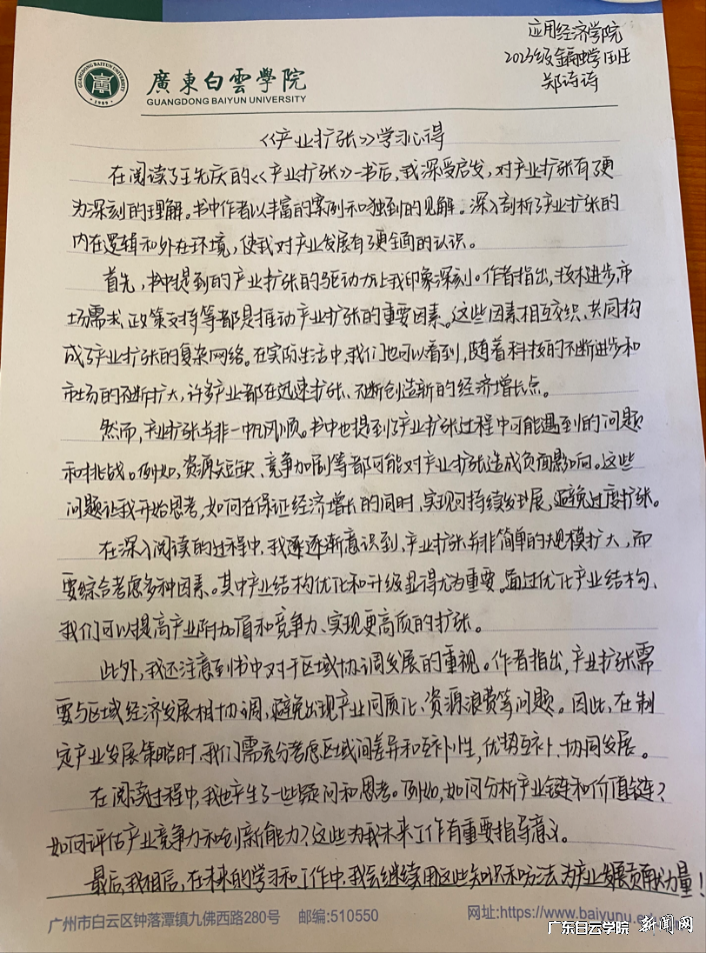 应用经济学院
2023级金融学四班
郑诗诗
廣東白雲學院
GUANGDONG BAIYUN UNIVERSITY
《产业扩张》学习心得
在阅读了王先庆的《产业扩张》一书后,我深受启发,对产业扩张有了更
为深刻的理解。书中作者以丰富的案例和独到的见解。深入剖析了产业扩张的
内在逻辑和外在环境,使我对产业发展有了更全面的认识。
首先,书中提到的产业扩张的驱动力让我印象深刻。作者指出,技术进步,市
场需求、政策支持等都是推动产业扩张的重要因素。这些因素相互交织、共同构
成了产业扩张的复杂网络。在实际生活中,我们也可以看到,随着科技的不断进步和
市场的不断扩大,许多产业都在迅速扩张、不断创造新的经济增长点。
然而,产业扩张并非一帆风顺。书中也提到了产业扩张过程中可能遇到的问题
和挑战。例如,资源短缺、竞争加剧等都可能对产业扩张造成负面影响。这些
问题让我开始思考,如何在保证经济增长的同时,实现可持续发展,避免过度扩张。
在深入阅读的过程中,我逐逐渐意识到,产业扩张并非简单的规模扩大,而
要综合考虑多种因素。其中产业结构优化和升级显得尤为重要。通过优化产业结构、
我们可以提高产业附加值和竞争力、实现更高质的扩张。
此外,我还注意到书中对于区域协调发展的重视。作者指出,产业扩张需
要与区域经济发展相协调,避免出现产业同质化、资源浪费等问题。因此,在制
定产业发展策略时,我们需充分考虑区域间差异和互补性,优势互补、协同发展。
在阅读过程中,我也产生了一些疑问和思考。例如,如何分析产业链和价值链?
如何评估产业竞争力和创新能力?这些为我未来工作有重要指导意义。
最后,我相信,在未来的学习和工作中,我会继续用这些知识和方法为产业发展贡献力量!
广州市白云区钟落潭镇九佛西路280号 邮编:510550 网址:https://www.baiyunu.e
广东白云学院 新闻网